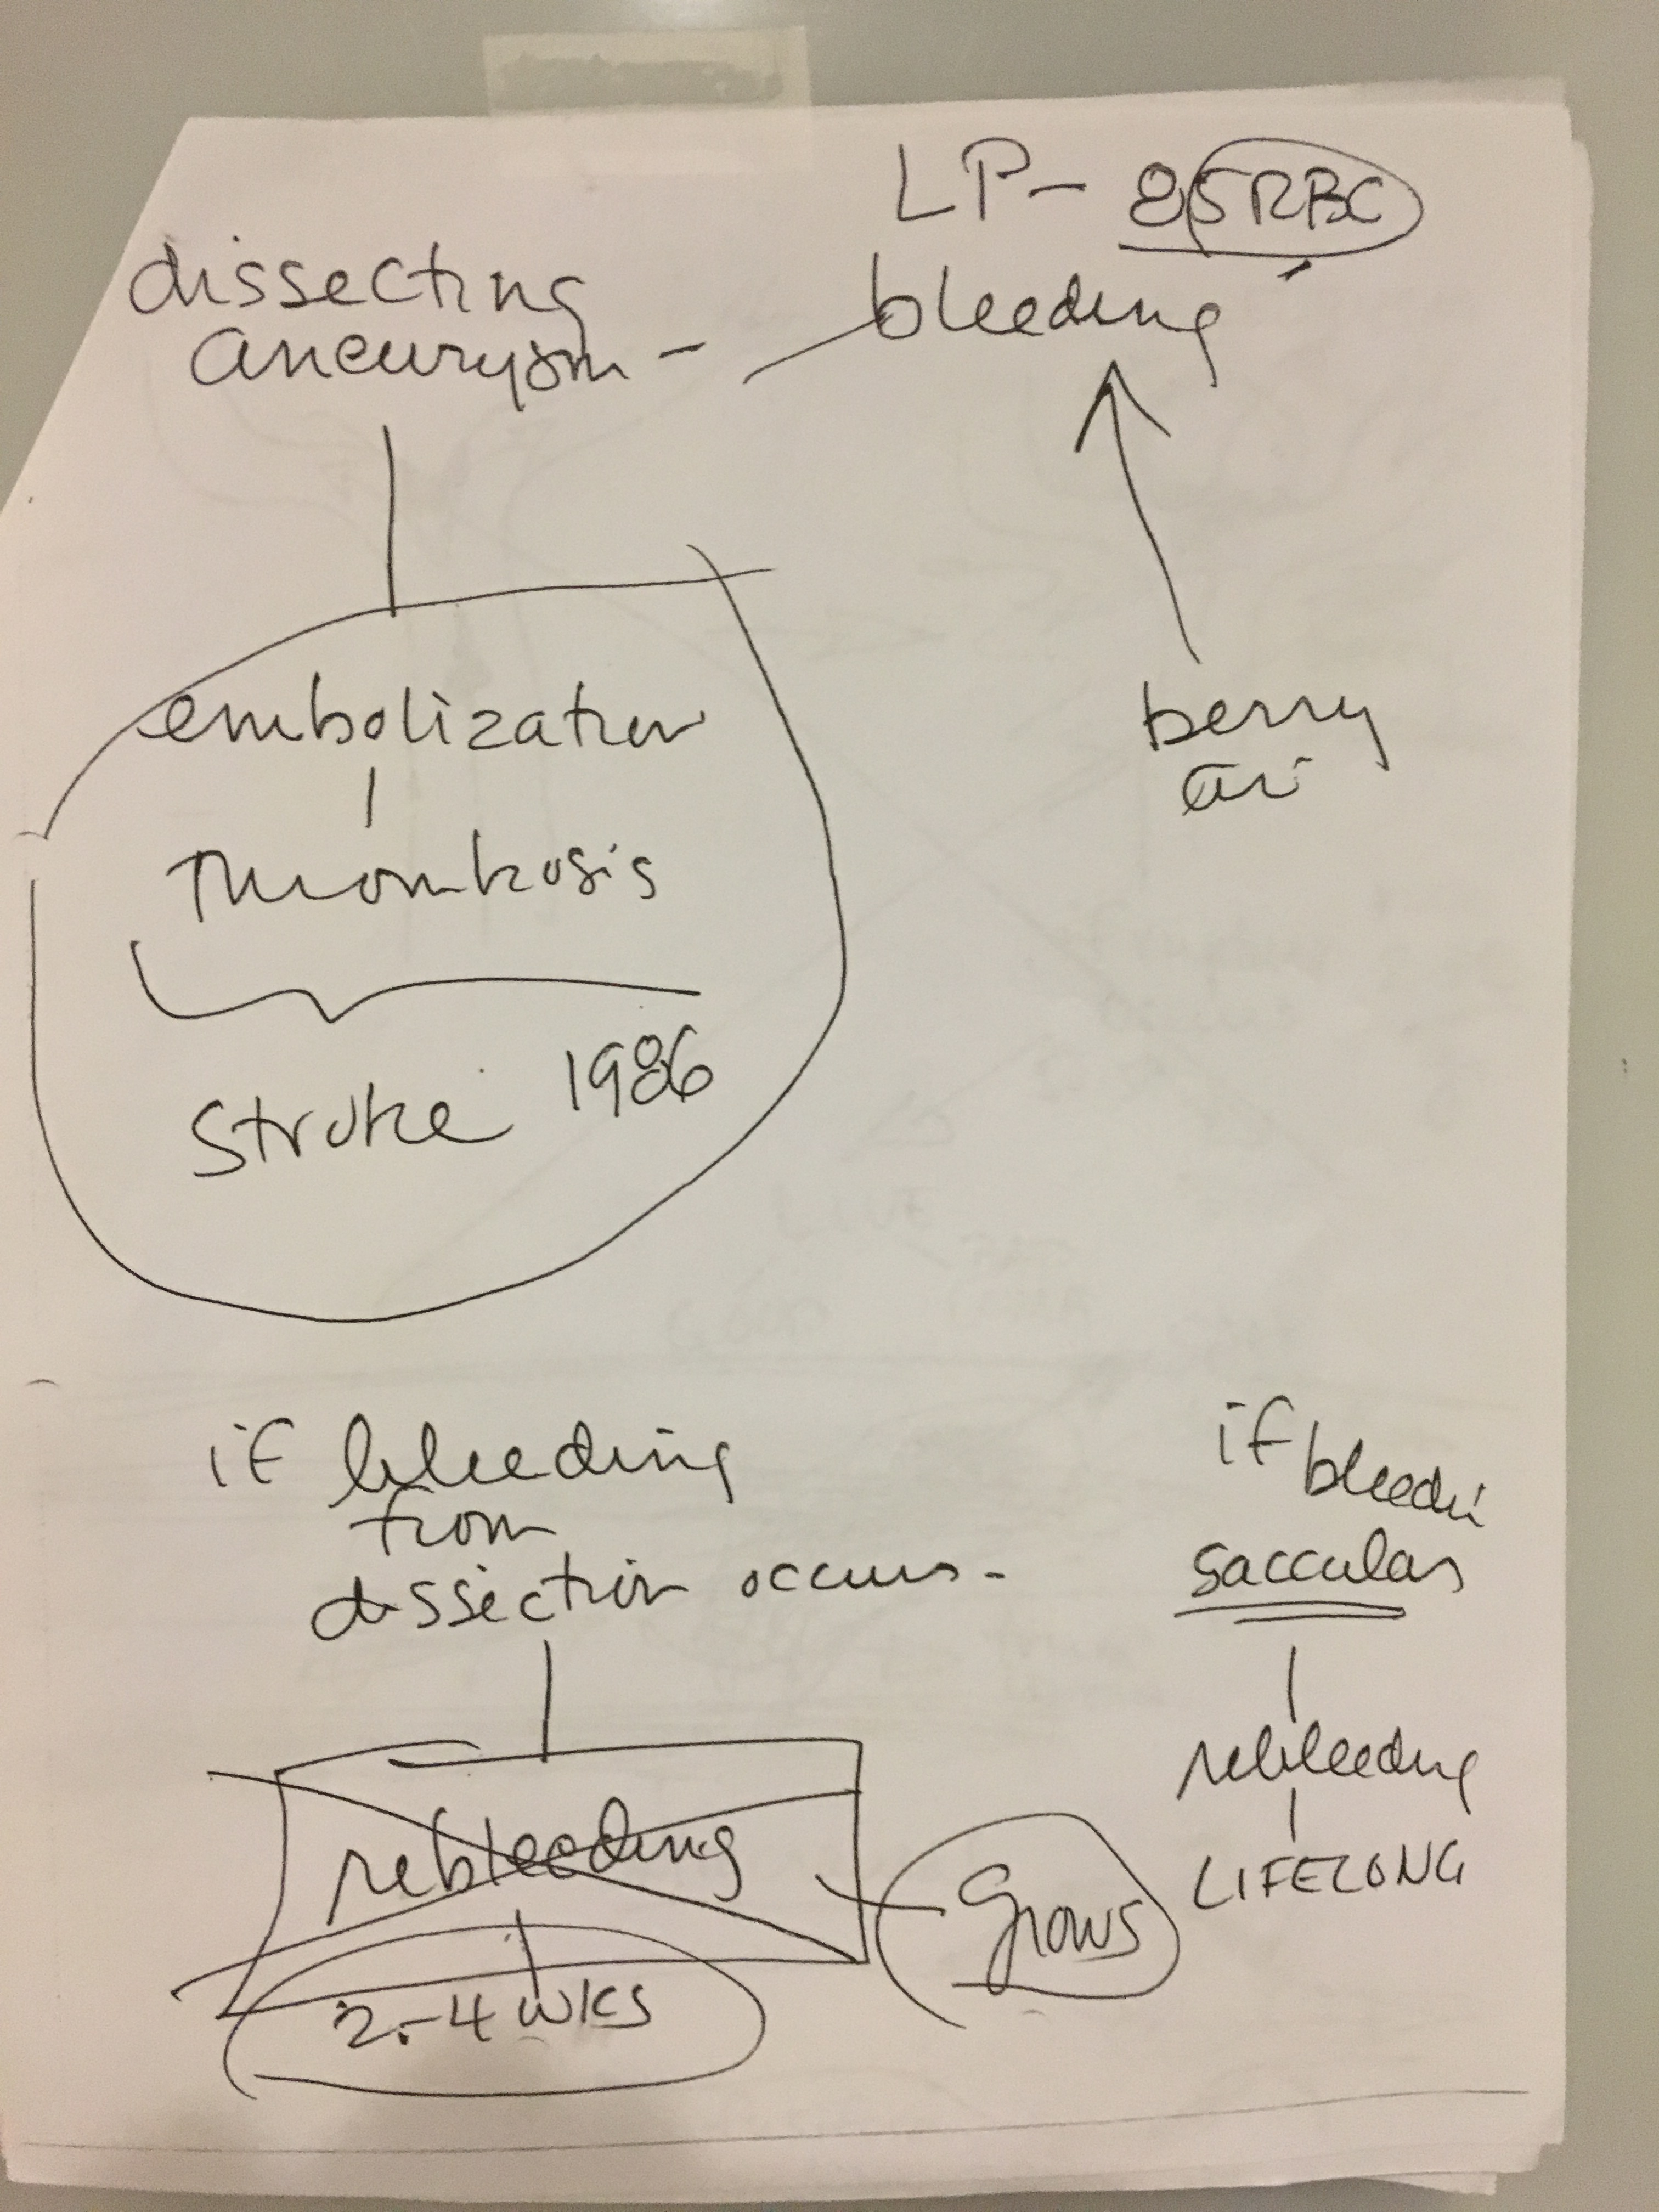 LP- 85 RBC
dissecting
aneurysm -
bleeding
embolization
Thrombosis
Stroke 1986
berry
an
if bleeding
from
dissection occurs -
rebleeding
2-4 wks
Grows
if bleedi
saccular
rebleeding
LIFELONG